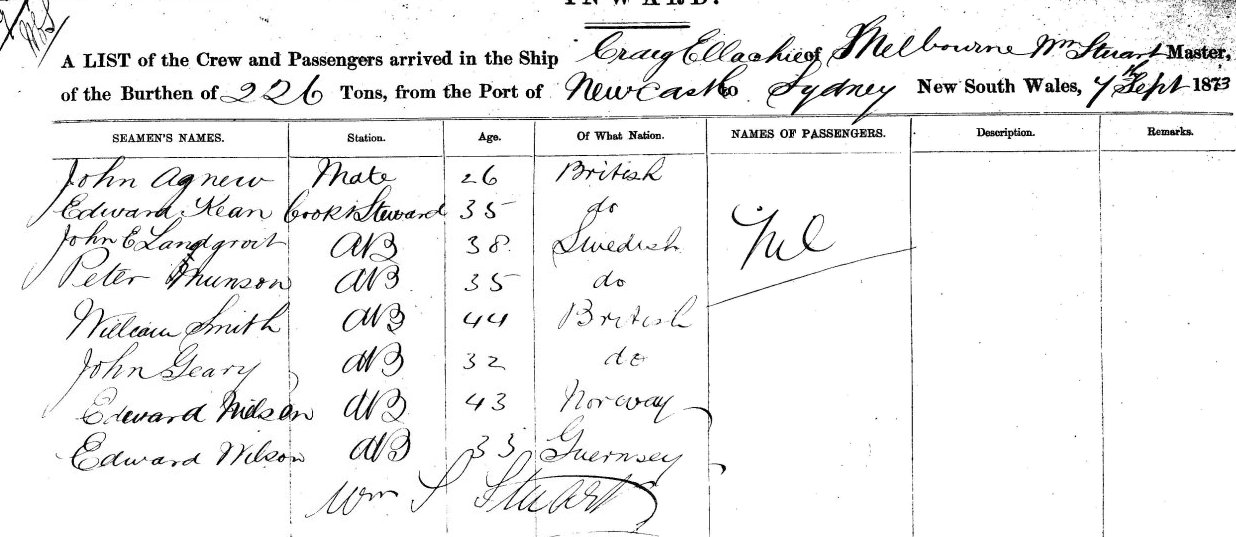 INWARD.
A LIST of the Crew and Passengers arrived in the Ship Craig Ellachie of Melbourne Wm Stuart Master,
of the Burthen of 226 Tons, from the Port of Newcastle to Sydney New South Wales, 7th Sept 1873
SEAMEN'S NAMES. Station. Age. Of What Nation. NAMES OF PASSENGERS. Description. Remarks.
John Agnew Mate 26 British
Edward Kean Cook & Steward 35 do
John E Landgroit AB 38 Swedish Nil
Peter Munson AB 35 do
William Smith AB 44 British
John Geary AB 32 do
Edward Nielson AB 43 Norway
Edward Wilson AB 33 Guernsey
Wm S Stuart